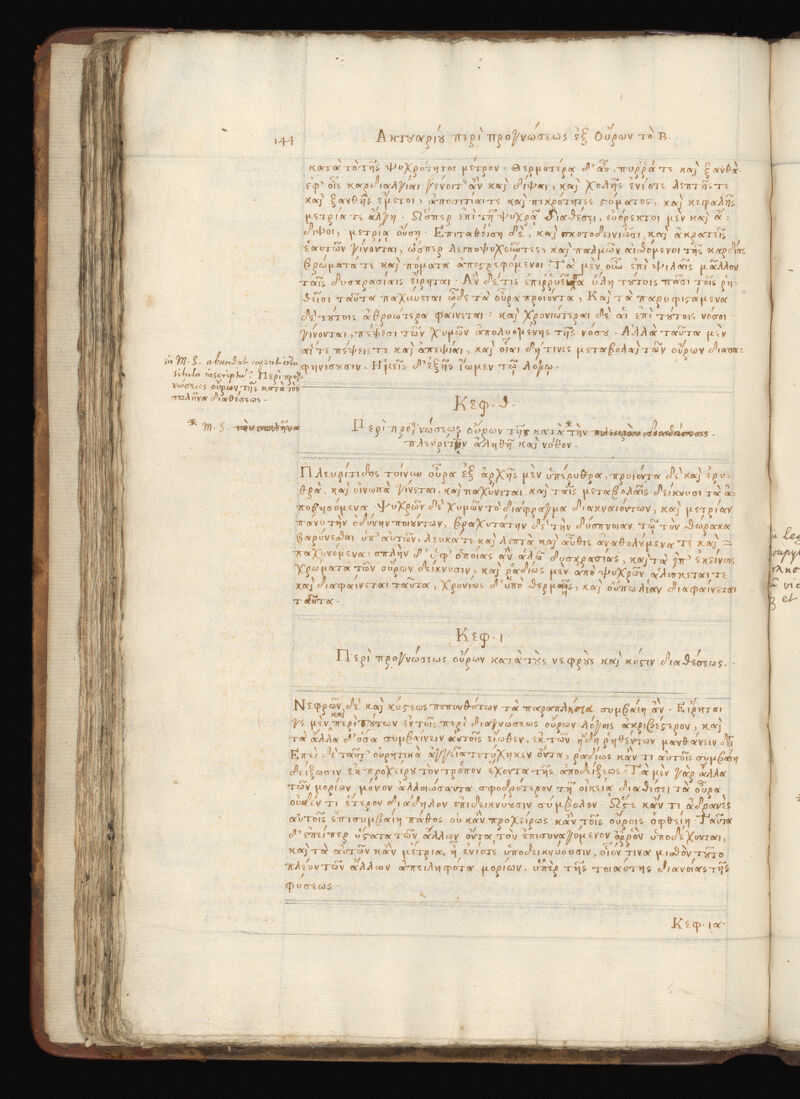 144 Ακτουαρίου περὶ προγνώσεως ἐξ Οὔρων τὸ Β.
κατὰ τὸ τῆς ψυχρότητος μέτρον· θερμοτέρα δ' ἂν, πυρρά τε καὶ ξανθὰ
ἐφ' οἷς καρδιαλγίαι γένοιτ' ἂν καὶ δίψαι, καὶ χολῆς ἐνίοτε λεπτῆς τε
καὶ ξανθῆς ἔμετοι, ἀποσιτίαι τε καὶ πικρότητες στόματος, καὶ κεφαλῆς
μετρία τε ἄλγη. Ὥσπερ ἐπὶ τῇ ψυχρᾷ διαθέσει, εὐόρεκτοι μὲν καὶ ἄ-
διψοι, μετρίᾳ οὔσῃ. Ἐπιταθείσῃ δὲ, καὶ σκοτοδεινιῶσι, καὶ ἀκρατεῖς
ἑαυτῶν γίνονται, ὥσπερ λειποψυχοῦντες, καὶ παλμῶν αἰσθόμενοι τῆς καρδίας
βρώματά τε καὶ πόματα ἀποστρεφόμενοι. Τὰ μὲν οὖν ἐπὶ ψιλαῖς μᾶλλον
ταῖς δυσκρασίαις εἴρηται. Ἂν δέ τις ἐπιρρυεῖσα ὕλη τούτοις πᾶσι τοῖς ῥη-
θεῖσι ταῦτα παχύνεται ὧδε τὰ οὖρα προϊόντα, Καὶ τὰ παρυφιστάμενα
δὲ τούτοις ἀθροώτερα φαίνεται· καὶ χρονιώτεραι δὲ αἱ ἐπὶ τούτοις νόσοι
γίνονται, πέψεσι τῶν χυμῶν ἀπολυομένης τῆς νόσου. Ἀλλὰ ταῦτα μὲν
αἵ τε πέψεις τε καὶ ἀπεψίαι, καὶ οἷαι δή τινες μεταβολαὶ τῶν οὔρων διασα-
φηνίσουσιν. Ἡμεῖς δ' ἑξῆς ἴωμεν τῷ λόγῳ.
in M. S. abundat caput isto
titulo inscriptum. Περὶ προγ-
νώσεως οὔρων τῆς κατὰ τὸν
σπλῆνα διαθέσεως.
Κεφ. θ.
* M. S. τὸν σπλῆνα
Περὶ προγνώσεως οὔρων τῆς κατὰ * τὴν πλευρὰν διαθέσεως.
πλευρίτιν ἀληθῆ καὶ νόθον.
Πλευρίτιδος τοίνυν οὖρα ἐξ ἀρχῆς μὲν ὑπέρυθρα, προϊόντα δὲ καὶ ἐρυ-
θρὰ, καὶ οἰνωπὰ γίνεται, καὶ παχύνεται καὶ ταῖς μεταβολαῖς δείκνυσι τὰ ἀ-
ποβησόμενα. Ψυχρῶν δὲ χυμῶν τὸ διάφραγμα διακναιόντων, καὶ μετρίαν
πάνυ τὴν ὀδύνην ποιούντων, βραχυτάτην δὲ τὴν δύσπνοιαν τῷ τὸν θώρακα
βαρύνεσθαι ὑπ' αὐτῶν, λευκά τε καὶ λεπτὰ καὶ αὖθις ἀναθολούμενά τε καὶ
παχυνόμενα: σπλὴν δ' ὑφ' ὁποίας ἂν ἁλῷ δυσκρασίας, καὶ τὰ ἐπ' ἐκείνης
χρώματα τῶν οὔρων δείκνυσιν, καὶ ῥᾳδίως μὲν ἀπὸ ψυχρῶν ἁλίσκεταί τε
καὶ διαφαίνεται ταῦτα, χρονίως δ' ὑπὸ θερμῆς, καὶ οὐ πω λίαν διαφαίνεται
ταῦτα.
Κεφ. ι.
Περὶ προγνώσεως οὔρων κατὰ τοὺς νεφροὺς καὶ κύστιν διαθέσεως.
Νεφρῶν δὲ καὶ κύστεως πεπονθότων τὰ παραπλήσια συμβαίη ἄν. Εἴρηται
γε μὲν καὶ περὶ τούτων ἐν τοῖς περὶ διαγνώσεως οὔρων λόγοις ἀκριβέστερον, καὶ
τὰ ἄλλα δ' ὅσα συμβαίνειν αὐτοῖς εἴωθεν, ἐκ τῶν ἤδη ῥηθέντων μανθάνειν δεῖ
Ἐπεὶ δὲ ταῦτ' οὐρητικὰ ἀγγεῖα τετύχηκεν ὄντα, ῥᾳδίως κἄν τι αὐτοῖς συμβαίη
δείξωσιν ἐκ προχείρου τὸν τρόπον ἔχοντα τῆς ἀποδείξεως. Τὰ μὲν γὰρ ἄλλα
τῶν μορίων, μόνον ἀλλοιώσαντα σφοδρότερον τῇ οἰκείᾳ διαθέσει τὰ οὖρα
οὐδέν τι ἕτερον διάδηλον ἐπιδείκνυσιν σύμβολον. Ὥστε κἄν τι ἀδρανὲς
αὐτοῖς ἐπισυμβαίη πάθος οὐκ ἂν προχείρως κἂν τοῖς οὔροις ὀφθείη. Ταῦτα
δ' ἐπείπερ ὕστατα τῶν ἄλλων ὄντα τὸν ἐπισυναγόμενον ὀρρὸν ὑποδέχονται,
καὶ τὰ αὑτῶν κἂν μέτρια, ᾖ ἐνίοτε ὑποδεικνύουσιν, οἷόν τινα μισθὸν τοῦτο
πλέον τῶν ἄλλων ἀπειληφότα μορίων, ὑπὲρ τῆς τοιαύτης διανοίας τῆς
φύσεως.
Κεφ. ια.